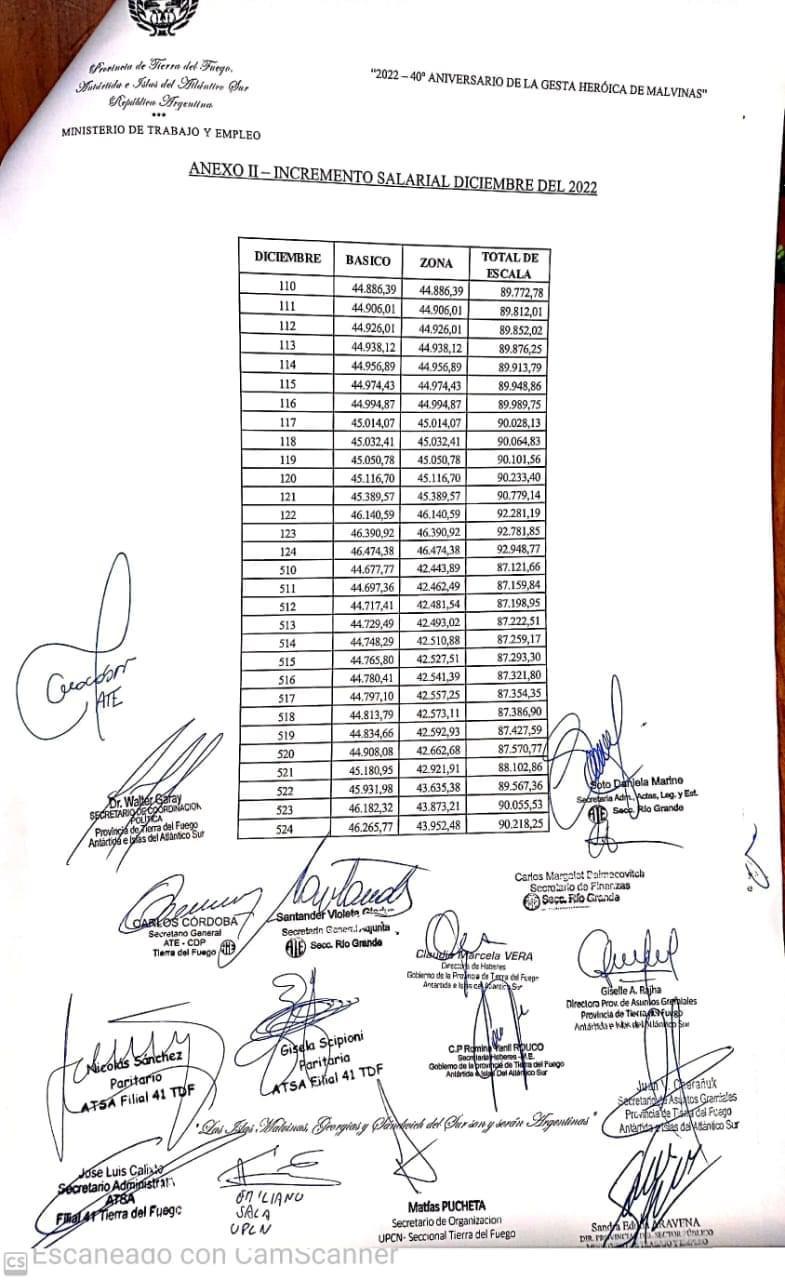 Provincia de Tierra del Fuego,
Antártida e Islas del Atlántico Sur
República Argentina
***
MINISTERIO DE TRABAJO Y EMPLEO
"2022 – 40º ANIVERSARIO DE LA GESTA HERÓICA DE MALVINAS"
ANEXO II – INCREMENTO SALARIAL DICIEMBRE DEL 2022
DICIEMBRE BASICO ZONA TOTAL DE
ESCALA
110 44.886,39 44.886,39 89.772,78
111 44.906,01 44.906,01 89.812,01
112 44.926,01 44.926,01 89.852,02
113 44.938,12 44.938,12 89.876,25
114 44.956,89 44.956,89 89.913,79
115 44.974,43 44.974,43 89.948,86
116 44.994,87 44.994,87 89.989,75
117 45.014,07 45.014,07 90.028,13
118 45.032,41 45.032,41 90.064,83
119 45.050,78 45.050,78 90.101,56
120 45.116,70 45.116,70 90.233,40
121 45.389,57 45.389,57 90.779,14
122 46.140,59 46.140,59 92.281,19
123 46.390,92 46.390,92 92.781,85
124 46.474,38 46.474,38 92.948,77
510 44.677,77 42.443,89 87.121,66
511 44.697,36 42.462,49 87.159,84
512 44.717,41 42.481,54 87.198,95
513 44.729,49 42.493,02 87.222,51
514 44.748,29 42.510,88 87.259,17
515 44.765,80 42.527,51 87.293,30
516 44.780,41 42.541,39 87.321,80
517 44.797,10 42.557,25 87.354,35
518 44.813,79 42.573,11 87.386,90
519 44.834,66 42.592,93 87.427,59
520 44.908,08 42.662,68 87.570,77
521 45.180,95 42.921,91 88.102,86
522 45.931,98 43.635,38 89.567,36
523 46.182,32 43.873,21 90.055,53
524 46.265,77 43.952,48 90.218,25
ATE
Dr. Walter Garay
SECRETARIO DE COORDINACION
POLÍTICA
Provincia de Tierra del Fuego
Antártida e Islas del Atlántico Sur
Soto Daniela Marine
Secretaria Adm., Actas, Leg. y Est.
ATE Secc. Río Grande
Carlos Margalot Dalmacovitch
Secretario de Finanzas
Secc. Río Grande
CARLOS CÓRDOBA
Secretario General
ATE - CDP
Tierra del Fuego
Santander Violeta
Secretaria General Adjunta
ATE Secc. Río Grande
Claudia Marcela VERA
Directora de Haberes
Gobierno de la Provincia de Tierra del Fuego
Antartida e Islas del Atlantico Sur
Giselle A. Rajha
Directora Prov. de Asuntos Gremiales
Provincia de Tierra del Fuego
Antártida e Islas del Atlántico Sur
Nicolás Sánchez
Paritario
ATSA Filial 41 TDF
Gisela Scipioni
Paritaria
ATSA Filial 41 TDF
C.P Romina Yanil ROUCO
Secretaria Haberes
Gobierno de la provincia de Tierra del Fuego
Antártida e Islas Del Atlántico Sur
Secretario de Asuntos Gremiales
Provincia de Tierra del Fuego
Antártida e Islas del Atlántico Sur
"Las Islas Malvinas, Georgias y Sandwich del Sur son y serán Argentinas"
Jose Luis
Secretario Administrat
ATSA
Filial 41 Tierra del Fuego
EMILIANO
SALA
UPCN
Matías PUCHETA
Secretario de Organizacion
UPCN- Seccional Tierra del Fuego
ARAVENA
SECTOR PÚBLICO
CS Escaneado con CamScanner